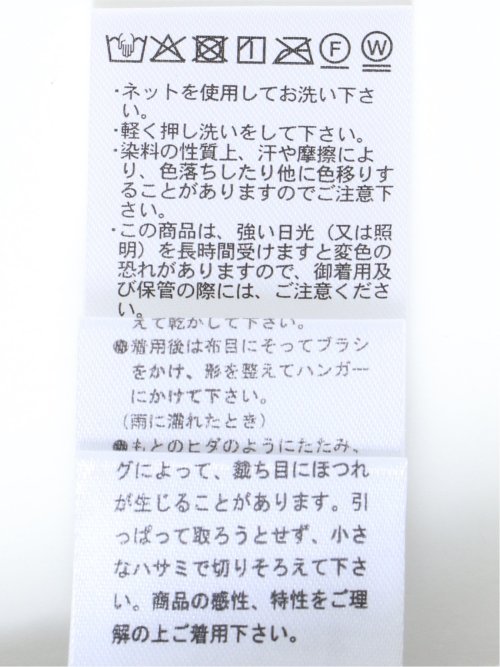 F W
・ネットを使用してお洗い下さ
い。
・軽く押し洗いをして下さい。
・染料の性質上、汗や摩擦によ
り、色落ちしたり他に色移りす
ることがありますのでご注意下
さい。
・この商品は、強い日光（又は照
明）を長時間受けますと変色の
恐れがありますので、御着用及
び保管の際には、ご注意くださ
い。
えて乾かして下さい。
●着用後は布目にそってブラシ
をかけ、形を整えてハンガー
にかけて下さい。
（雨に濡れたとき）
●もとのヒダのようにたたみ、
グによって、裁ち目にほつれ
が生じることがあります。引
っぱって取ろうとせず、小さ
なハサミで切りそろえて下さ
い。商品の感性、特性をご理
解の上ご着用下さい。